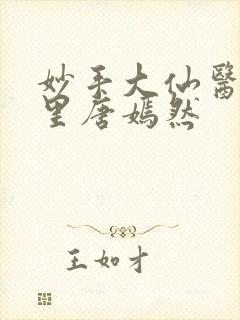 妙手大仙醫
里唐嫣然
王如才